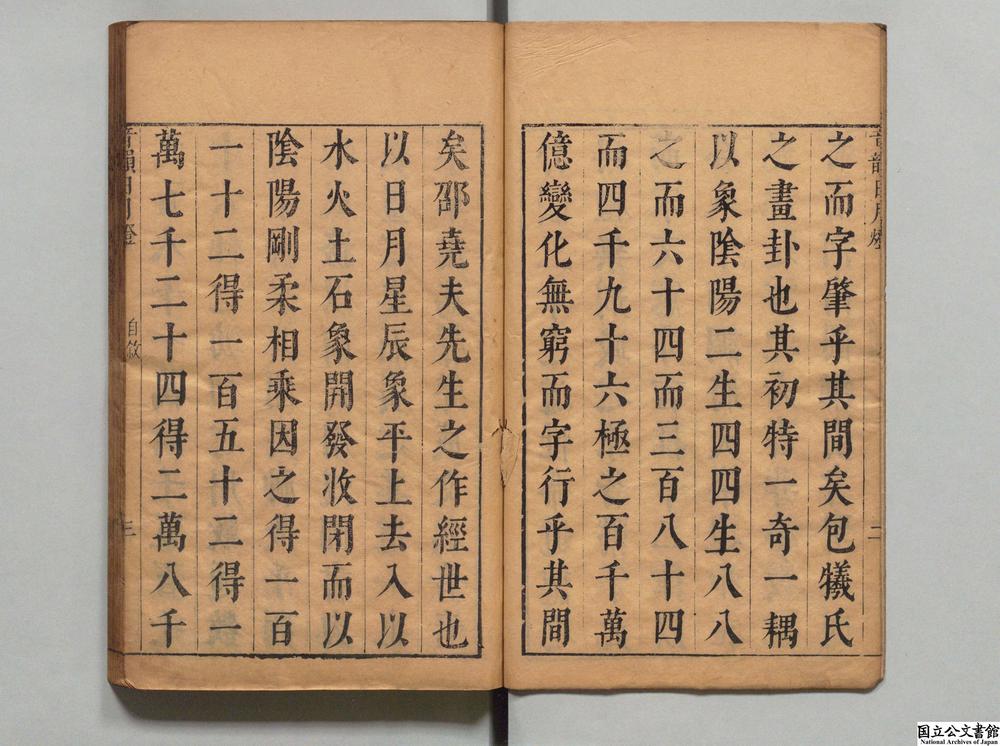 之而字肇乎其間矣包犧氏
之畫卦也其初特一奇一耦
以象陰陽二生四四生八八
之而六十四而三百八十四
而四千九十六極之百千萬
億變化無窮而字行乎其間
矣邵堯夫先生之作經世也
以日月星辰象平上去入以
水火土石象開發收閉而以
陰陽剛柔相乘因之得一百
一十二得一百五十二得一
萬七千二十四得二萬八千
二
自敘
三
国立公文書館
National Archives of Japan